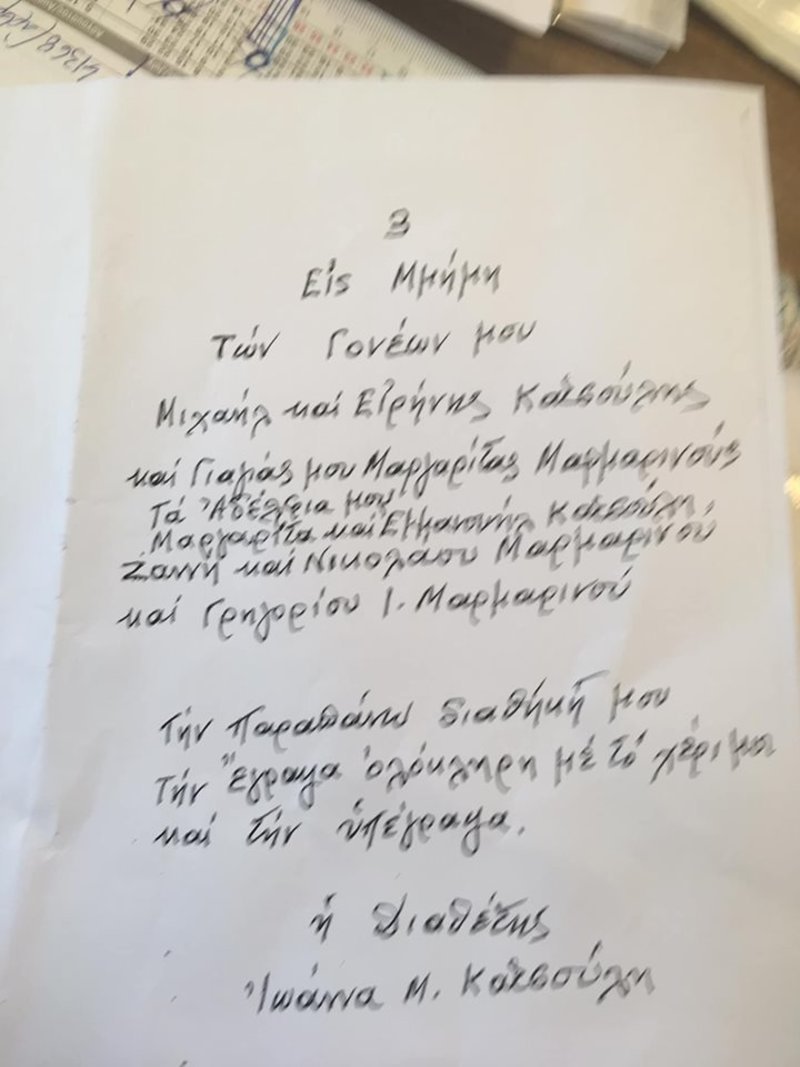 3
Εἰς Μμήμη
Τών Γονέων μου
Μιχαήλ καί Εἰρήνης Κατσούλης
καί Γιαγιάς μου Μαργαρίτας Μαρμαρινούς
Τά Ἀδέλφια μου
Μαργαρίτα καί Ἐμμανουήλ Κατσούλη,
Ζαννή καί Νικολάου Μαρμαρινού
καί Γρηγορίου Ι. Μαρμαρινού
Τήν Παραπάνω διαθήκή μου
Τήν Ἔγραψα ὁλόκληρη μέ τό χέρι μου
καί τήν ὑπέγραψα.
ἡ Διαθέτης
Ἰωάννα Μ. Κατσούλη